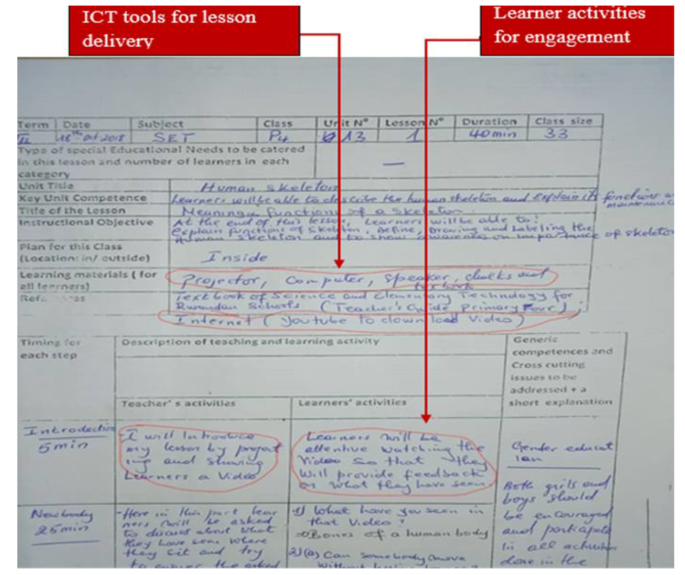 ICT tools for lesson
delivery
Learner activities
for engagement
Term Date Subject Class Unit N° Lesson N° Duration Class size
II 18th oct 2018 SET P4 13 1 40min 33
Type of special Educational Needs to be catered
in this lesson and number of learners in each
category
Unit Title Human skeleton
Key Unit Competence Learners will be able to describe the human skeleton and explain its functions and
maintenance
Title of the Lesson Meaning, functions of a skeleton
Instructional Objective At the end of this lesson, learners will be able to:
explain functions of skeleton, define, Drawing and Labeling the
Human skeleton and to show awareness on importance of skeleton
Plan for this Class
(Location: in/ outside) Inside
Learning materials ( for
all learners) Projector, Computer, Speaker, chalks and
textbook
Text book of Science and Elementary Technology for
Rwandan Schools (Teacher's Guide Primary Four);
Internet (Youtube to download Video)
Timing for
each step
Description of teaching and learning activity
Generic
competences and
Cross cutting
issues to be
addressed + a
short explanation
Teacher's activities Learners' activities
Introduction
5min
I will Introduce
my lesson by project
ing and showing
Learners a Video
Learners will be
attentive watching the
Video so that they
will provide feedback
on what they have seen
Gender educat
ion
Both girls and
boys should
be encouraged
and participate
in all activities
done in the
New body
25min
-Here in this part lear
ners will be asked
to discuss about what
they have seen where
they sit and try
to answer the asked
1) What have you seen in
that Video?
Bones of a human body
2)(a) Can somebody move
without